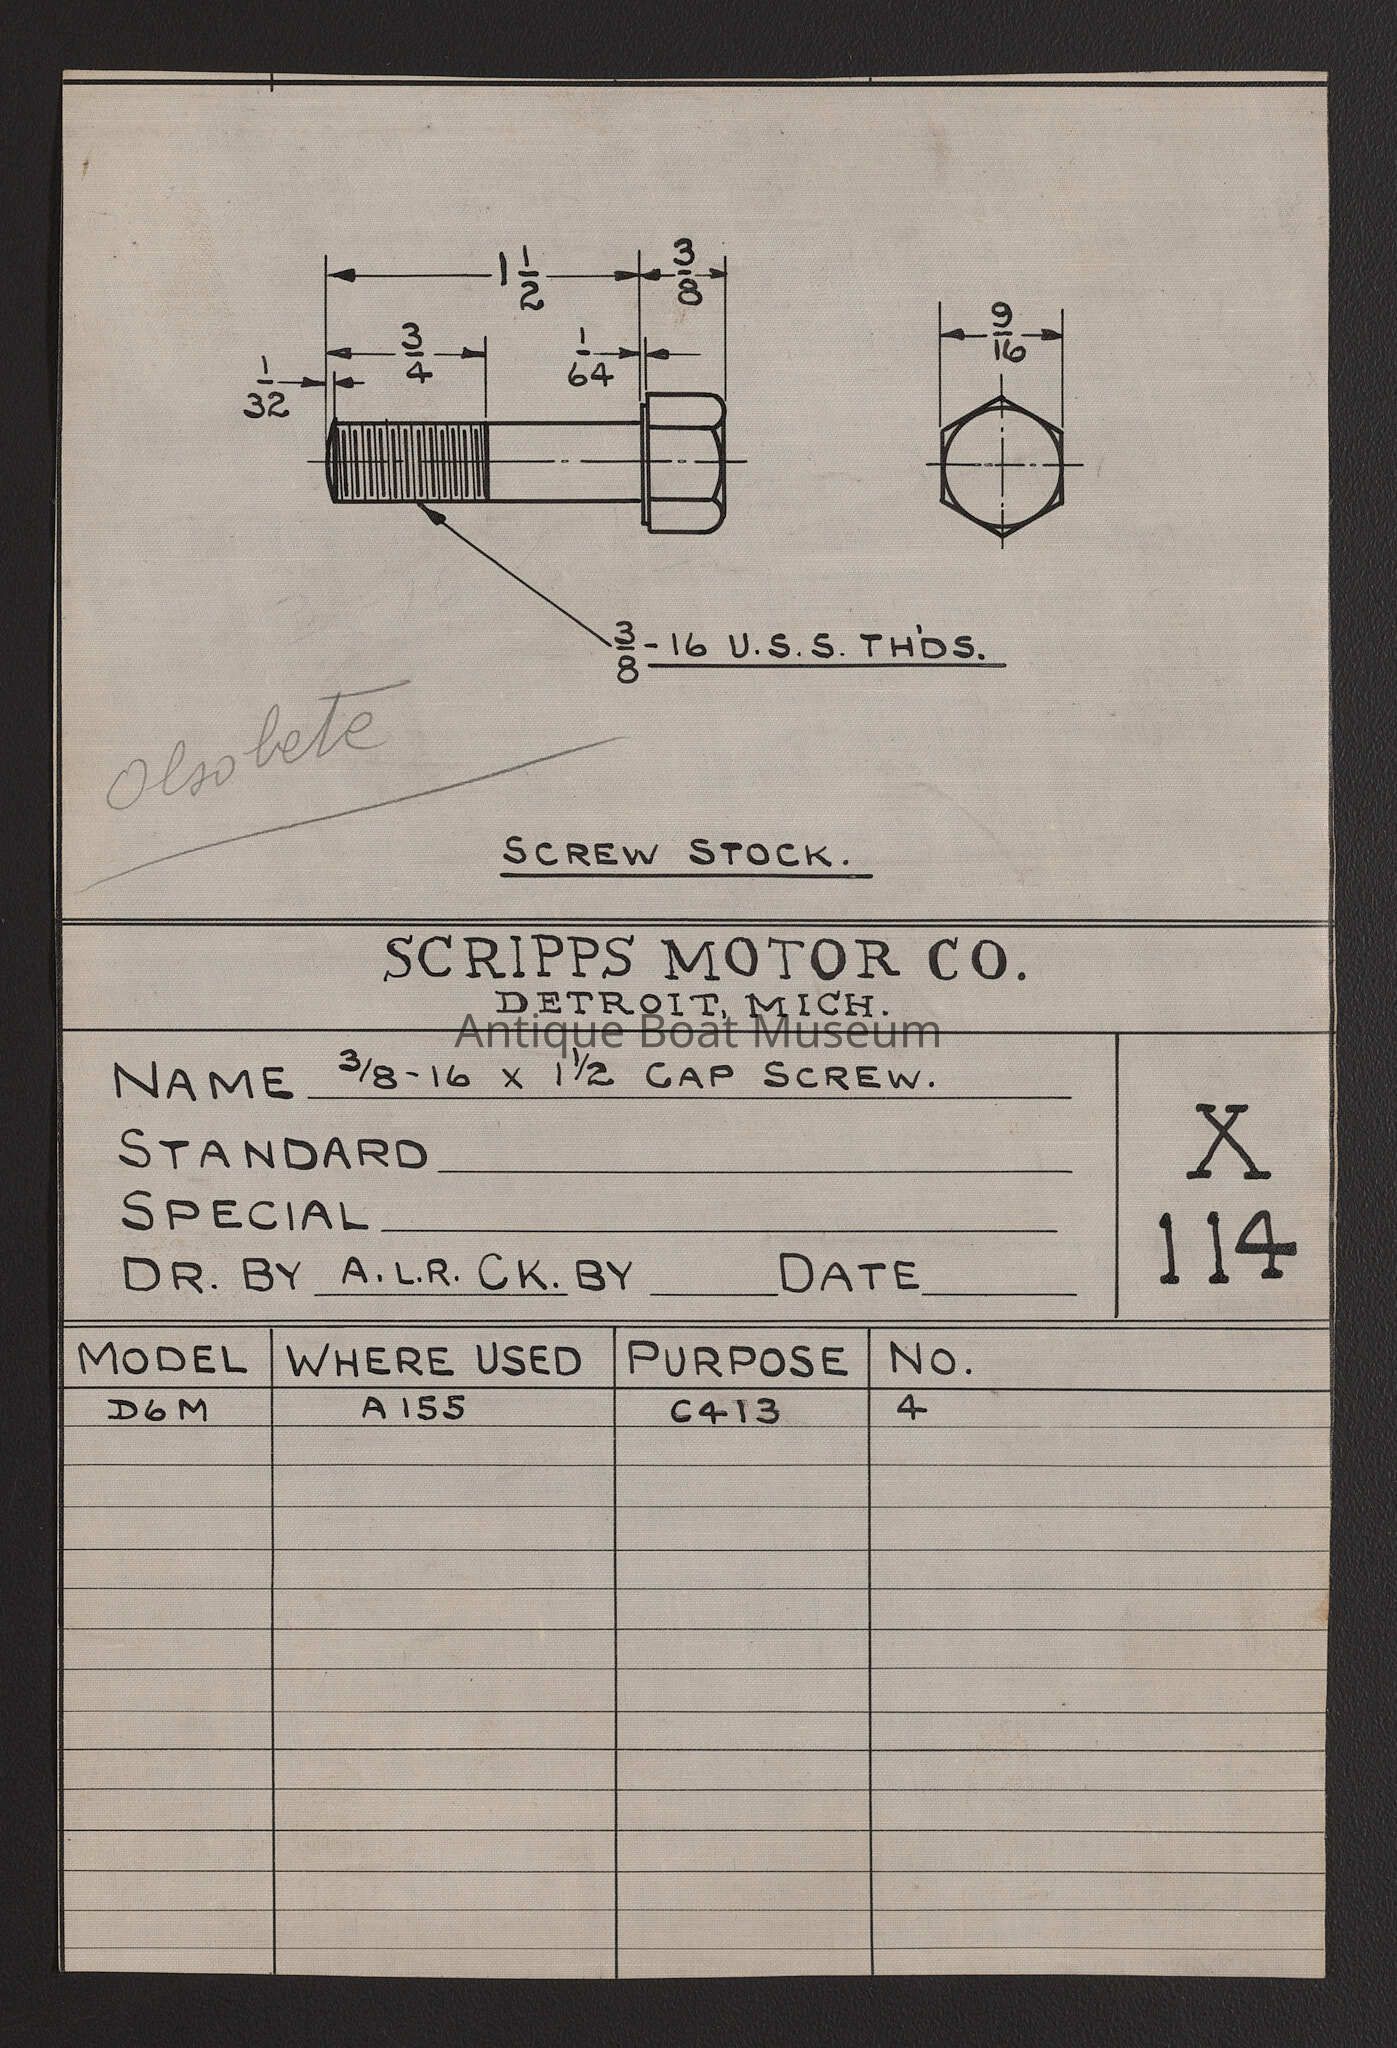 1 1/2 3/8
3/4 1/64 9/16
1/32
3/8 - 16 U.S.S. TH'DS.
Olsobete
SCREW STOCK.
SCRIPPS MOTOR CO.
DETROIT, MICH.
Antique Boat Museum
NAME 3/8-16 x 1 1/2 CAP SCREW.
STANDARD
SPECIAL
DR. BY A.L.R. CK. BY DATE
X
114
MODEL WHERE USED PURPOSE NO.
D6M A155 C413 4